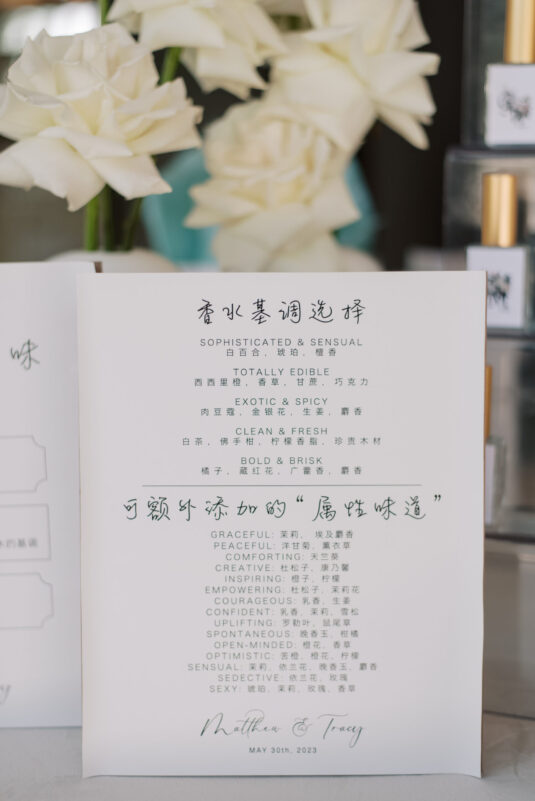 味
香水基调选择
SOPHISTICATED & SENSUAL
白百合, 琥珀, 檀香
TOTALLY EDIBLE
西西里橙, 香草, 甘蔗, 巧克力
EXOTIC & SPICY
肉豆蔻, 金银花, 生姜, 麝香
CLEAN & FRESH
白茶, 佛手柑, 柠檬香脂, 珍贵木材
BOLD & BRISK
橘子, 藏红花, 广藿香, 麝香
可额外添加的“属性味道”
GRACEFUL: 茉莉, 埃及麝香
PEACEFUL: 洋甘菊, 薰衣草
COMFORTING: 天竺葵
CREATIVE: 杜松子, 康乃馨
INSPIRING: 橙子, 柠檬
EMPOWERING: 杜松子, 茉莉花
COURAGEOUS: 乳香, 生姜
CONFIDENT: 乳香, 茉莉, 雪松
UPLIFTING: 罗勒叶, 鼠尾草
SPONTANEOUS: 晚香玉, 柑橘
OPEN-MINDED: 橙花, 香草
OPTIMISTIC: 苦橙, 橙花, 柠檬
SENSUAL: 茉莉, 依兰花, 晚香玉, 麝香
SEDECTIVE: 依兰花, 玫瑰
SEXY: 琥珀, 茉莉, 玫瑰, 香草
Matthew & Tracey
MAY 30th, 2023
的基调